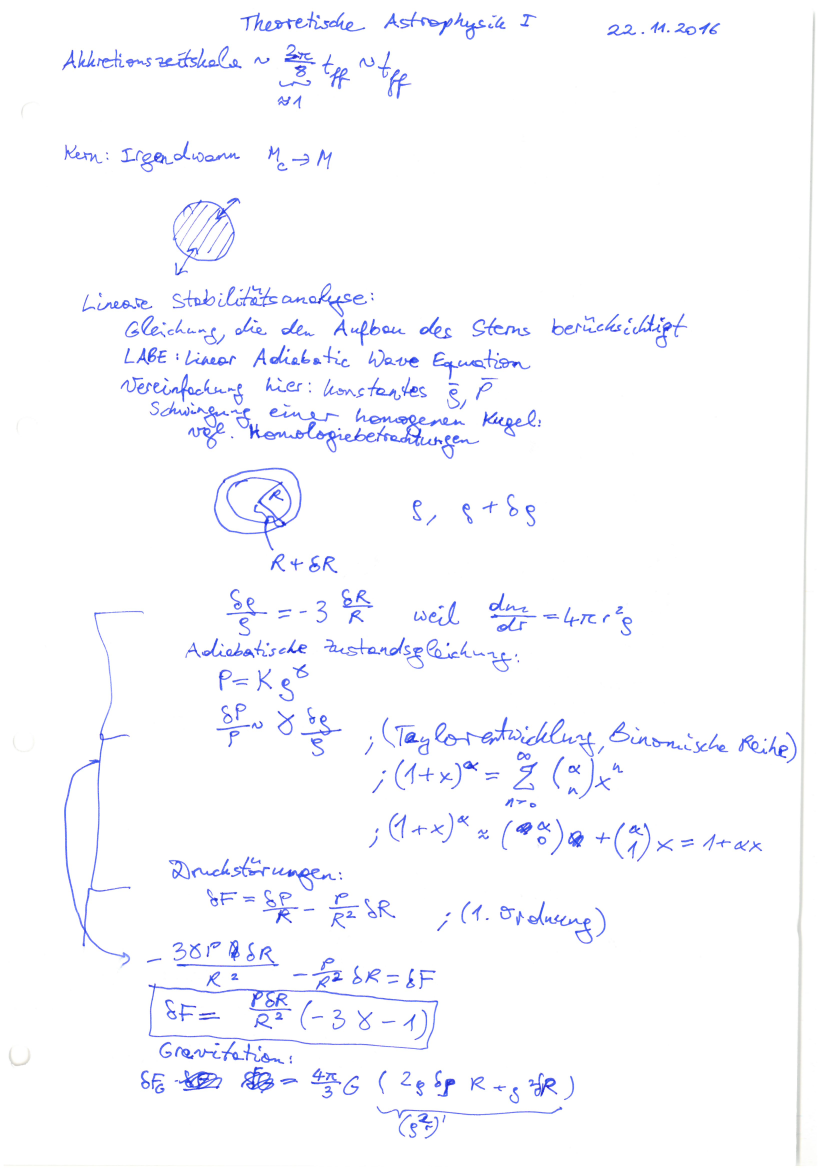 Theoretische Astrophysik I 22.11.2016
Akkretionszeitskala ~ 3π/8 t_ff ~ t_ff
≈1
Kern: Irgendwann M_c → M
Lineare Stabilitätsanalyse:
Gleichung, die den Aufbau des Sterns berücksichtigt
LABE: Linear Adiabatic Wave Equation
Vereinfachung hier: konstantes ρ̄, P̄
Schwingung einer homogenen Kugel:
vgl. Homologiebetrachtungen
R
ρ, ρ + δρ
R + δR
δρ/ρ = -3 δR/R weil dm/dr = 4πr²ρ
Adiabatische Zustandsgleichung:
P = K ρ^γ
δP/P ~ γ δρ/ρ ; (Taylorentwicklung, Binomische Reihe)
; (1+x)^α = ∑_{n=0}^∞ (α n) x^n
; (1+x)^α ≈ (α 0) + (α 1) x = 1+αx
Druckstörungen:
δF = δP/R - P/R² δR ; (1. Ordnung)
- 3γP δR/R² - P/R² δR = δF
δF = PδR/R² (-3γ-1)
Gravitation:
δF_G = 4π/3 G (2ρ δρ R + ρ² δR)
(ρ²r)'